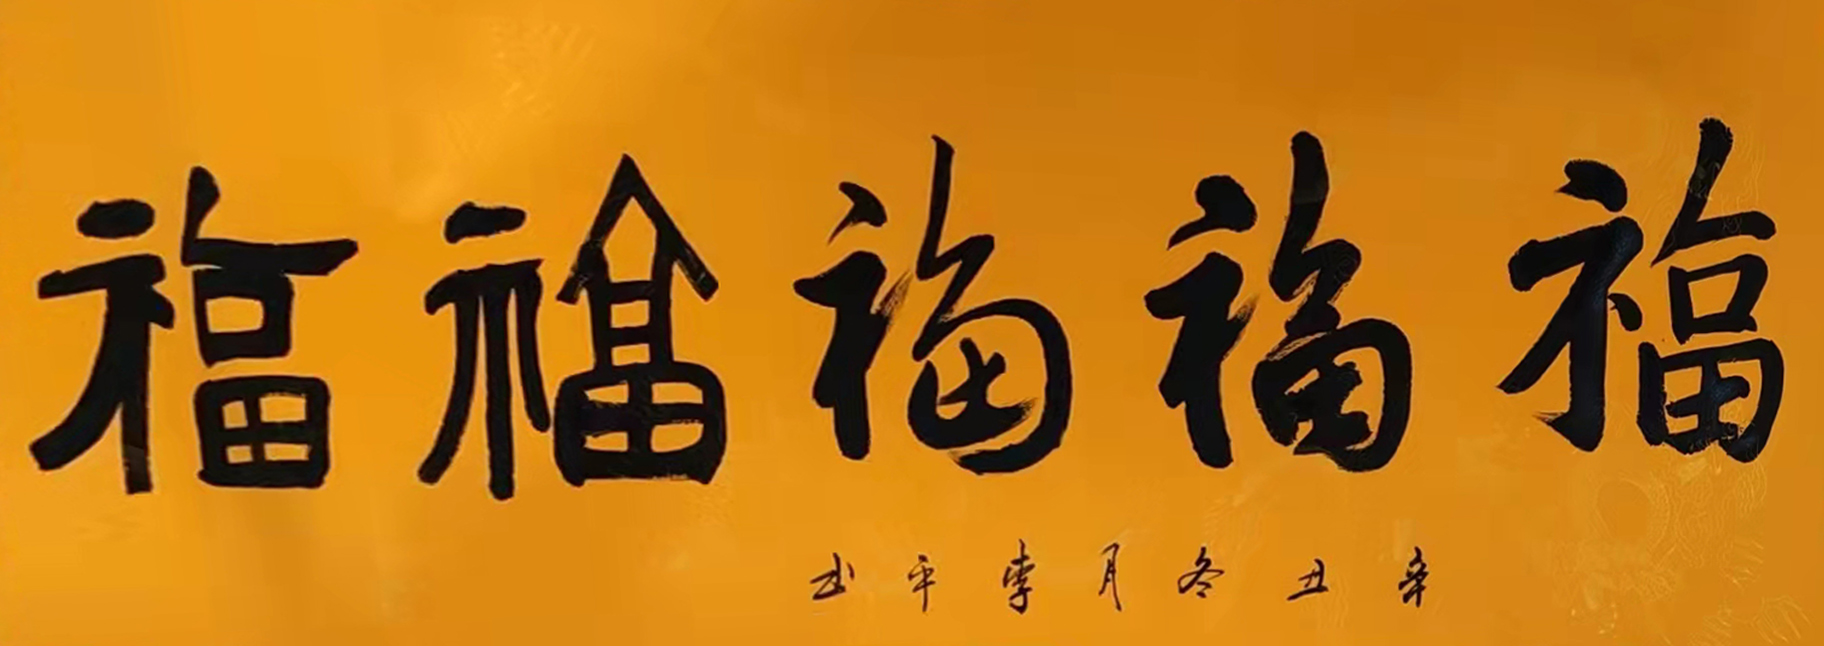 福福福福福
辛丑冬月李平书